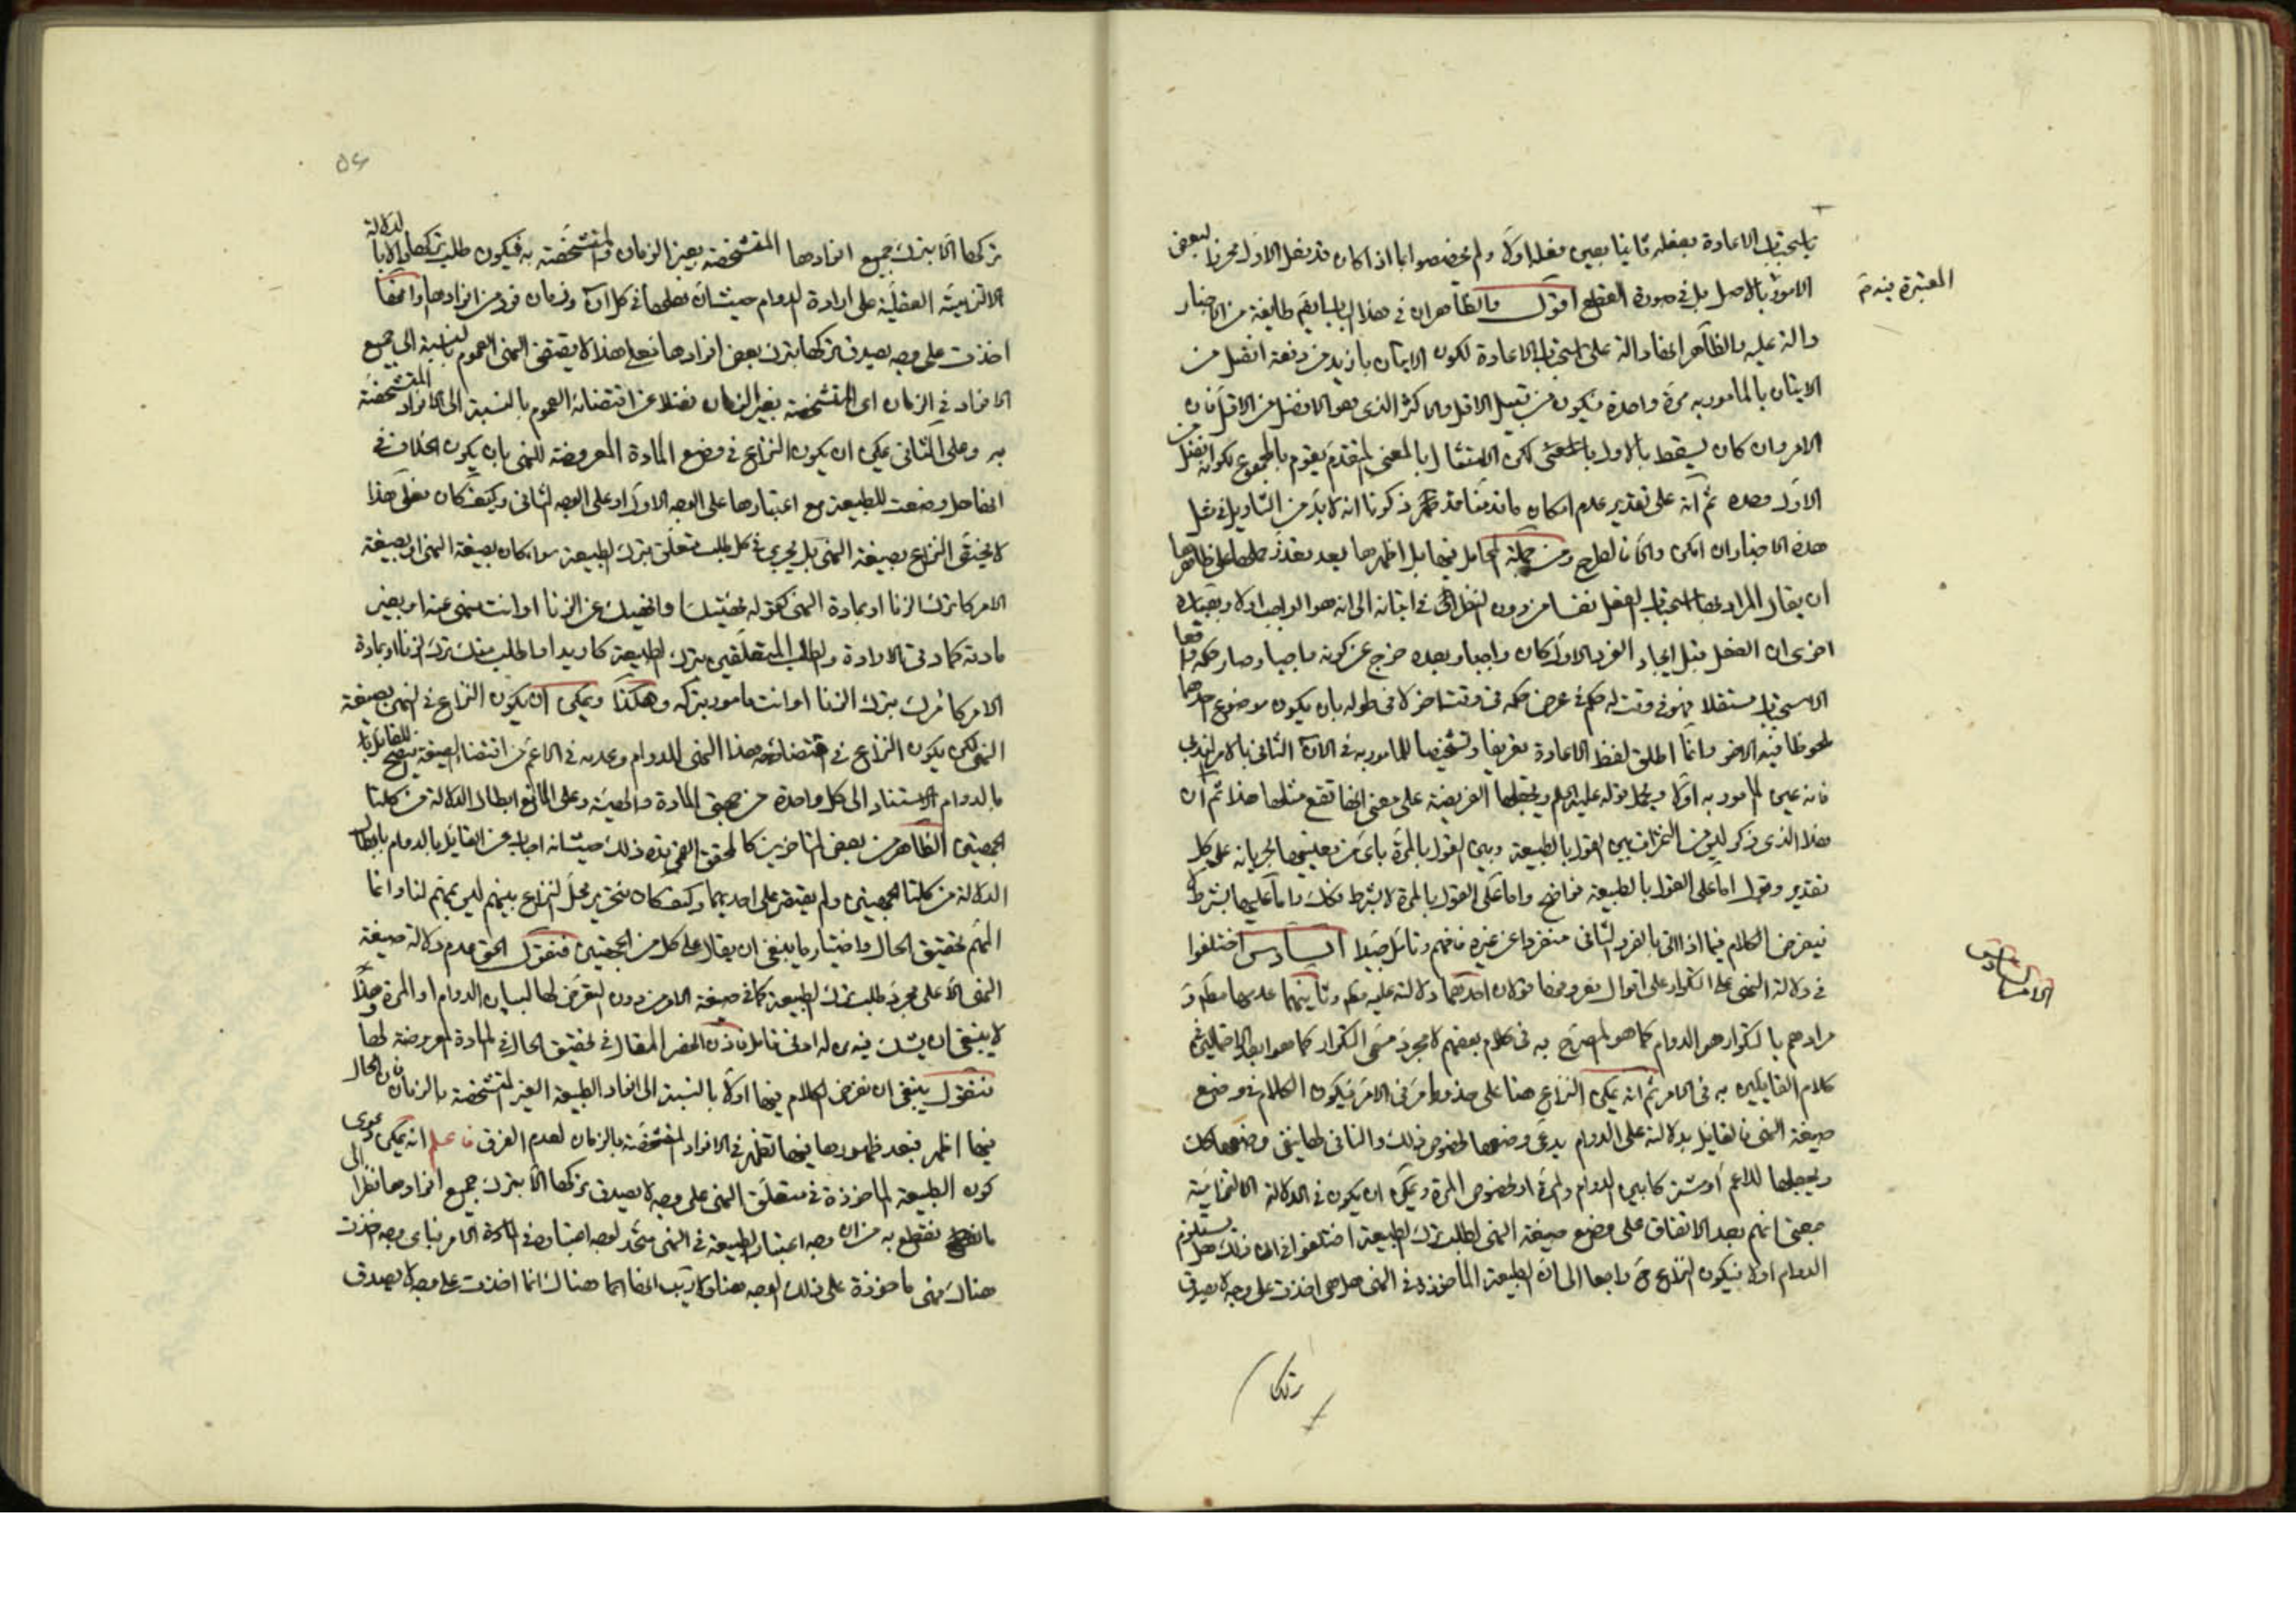 باستحباب الاعادة بفعله ثانيا بعين فعله اولا ولم يخصصوا بما اذا كان قد فعل الاول محرزا لبعض
المعتبرة فيه ثم
الامور بالاصل بل في صورة القطع اقول والظاهر ان في هذا الباب طايفة من الاخبار
دالة عليه والظاهر انها دالة على استحباب الاعادة لكون الاتيان بازيد من دفعة افضل من
الاتيان بالمامور به مرة واحدة فيكون من قبيل الاقل والاكثر الذي هو الافضل من الاقل فان
الامر وان كان يسقط بالاول لكن الامتثال بالمعنى المتقدم يقوم بالمجموع بكونه افضل من
الاول وحده ثم انه على تقدير عدم امكان ما قدمنا فقد ذكرنا انه لا بد من التاويل في مثل
هذه الاخبار ان امكن والا فالطرح ومن جملة المحامل فيها بل اظهرها بعد تعذر حملها على ظاهرها
ان يقال المراد بها استحباب الفعل نفسا من دون النظر الى في اتيانه الى انه هو الواجب اولا وبعبارة
اخرى ان الفعل قبل ايجاد الفرد الاول كان واجبا وبعده خرج عن كونه واجبا وصار حكمه واقعا
الاستحباب مستقلا فهو في وقت له حكم في عرض حكمه في وقت اخر لا في طوله بان يكون موضوع احدهما
ملحوظا فيه الاخر وانما اطلق لفظ الاعادة تعريفا وتشخيصا للمامور به في الان الثاني بالامر الندبي
فانه عين المامور به اولا ويحمل قوله عليه السلم ويجعلها الفريضة على معنى انها تقع مثلها هذا ثم ان
هذا الذي ذكر ليس من الثمرات بين القول بالطبيعة وبين القول بالمرة باي من معنييها لجريانه على كل
تقدير وقول اما على القول بالطبيعة فواضح واما على القول بالمرة لا بشرط فكك واما عليها بشرط لا
فيفرض الكلام فيما اذا اتى بالفرد الثاني منفردا عن غيره فافهم وتامل جيدا السادس اختلفوا
الامر السادس
في دلالة النهي على التكرار على اقوال معروفها قولان احدهما دلالته عليه مط وثانيهما عدمها مط و
مرادهم بالتكرار هو الدوام كما هو المصرح به في كلام بعضهم لا مجرد مسمى التكرار كما هو احد الاحتمالين في
كلام القايلين به في الامر ثم انه يمكن النزاع هنا على حذو ما مر في الامر فيكون الكلام في وضع
صيغة النهي فالقايل بدلالته على الدوام يدعى وضعها لخصوص ذلك والنافي لها ينفي وضعها كك
ويجعلها للاعم او مشتركا بين الدوام والمرة او لخصوص المرة ويمكن ان يكون في الدلالة الالتزامية
بمعنى انهم بعد الاتفاق على وضع صيغة النهي لطلب ترك الطبيعة اختلفوا في ان ذلك هل يستلزم
الدوام اولا فيكون النزاع ح راجعا الى ان الطبيعة الماخوذة في النهي هل هي اخذت على وجه لا يصدق
تركها
۵۴
تركها الا بترك جميع افرادها المتشخصة بغير الزمان والمتشخصة به فيكون طلب تركها دالا بالدلالة
الالتزامية العقلية على ارادة الدوام حيث ان فعلها في كل ان وزمان فرد من افرادها وانها
اخذت على وجه يصدق تركها بترك بعض افرادها فعلى هذا لا يقتضي النهي العموم بالنسبة الى جميع
الافراد في الزمان اى المتشخصة بغير الزمان فضلا عن اقتضائه العموم بالنسبة الى الافراد المتشخصة
به وعلى الثاني يمكن ان يكون النزاع في وضع المادة المعروضة للنهي بان يكون الخلاف في
انها هل وضعت للطبيعة مع اعتبارها على الوجه الاول او على الوجه الثاني وكيف كان فعلى هذا
لا يختص النزاع بصيغة النهي بل يجري في كل طلب متعلق بترك الطبيعة سواء كان بصيغة النهي او بصيغة
الامر كاترك الزنا او بمادة النهي كقوله نهيتك وانهيك عن الزنا او انت منهي عنه او بغير
مادته كمادتي الارادة والطلب المتعلقين بترك الطبيعة كاريد او اطلب منك ترك الزنا او بمادة
الامر كامرك بترك الزنا او انت مامور بتركه وهكذا ويمكن ان يكون النزاع في النهي بصيغة
النهي لكن يكون النزاع في اقتضاء هذا النهي للدوام وعدمه في الاعم من اقتضاء الصيغة فيصح للقايل
بالدوام الاستناد الى كل واحدة من جهتي المادة والهيئة وعلى المانع ابطال الدلالة من كلتا
الجهتين الظاهر من بعض المتاخرين كالمحقق القمي قده ذلك حيث انه اجاب عن القايل بالدوام بابطال
الدلالة من كلتا الجهتين ولم يقتصر على احديهما وكيف كان فتحرير محل النزاع بينهم ليس بمهم لنا وانما
المهم تحقيق الحال واختيار ما ينبغي ان يقال على كل من الجهتين فنقول الحق عدم دلالة صيغة
النهي الا على مجرد طلب ترك الطبيعة كما في صيغة الامر من دون التعرض لها لبيان الدوام او المرة وهذا
لا ينبغي ان يشك فيه من له ادنى تامل فاذن انحصر المقال في تحقيق الحال في المادة المعروضة لها
فنقول ينبغي ان نفرض الكلام فيها اولا بالنسبة الى افراد الطبيعة الغير المتشخصة بالزمان فان الحال
فيها اظهر فبعد ظهورها فيها تظهر في الافراد المتشخصة بالزمان لعدم الفرق فاعلم انه يمكن دعوى
كون الطبيعة الماخوذة في متعلق النهي على وجه لا يصدق تركها الا بترك جميع افرادها نظرا الى
ما نقطع به من ان وجه اعتبار الطبيعة في النهي متحد لوجه اعتباره في مادة الامر فباى وجه اخذت
هناك فهي ماخوذة على ذلك الوجه هنا ولا ريب انها هناك انما اخذت على وجه لا يصدق